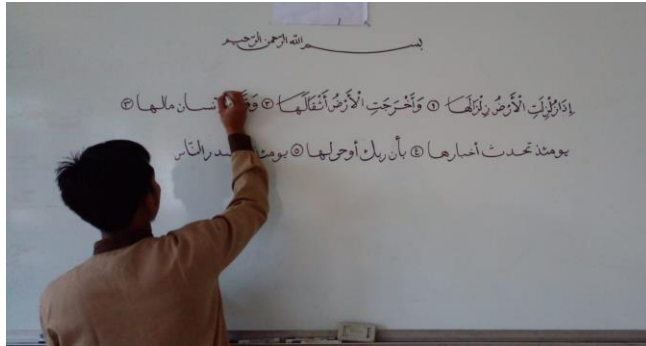 بسم الله الرحمن الرحيم
إِذَا زُلْزِلَتِ الْأَرْضُ زِلْزَالَهَا ١ وَأَخْرَجَتِ الْأَرْضُ أَثْقَالَهَا ٢ مالها ٣
يومئذ تحدث أخبارها ٤ بأن ربك أوحى لها ٥ الناس